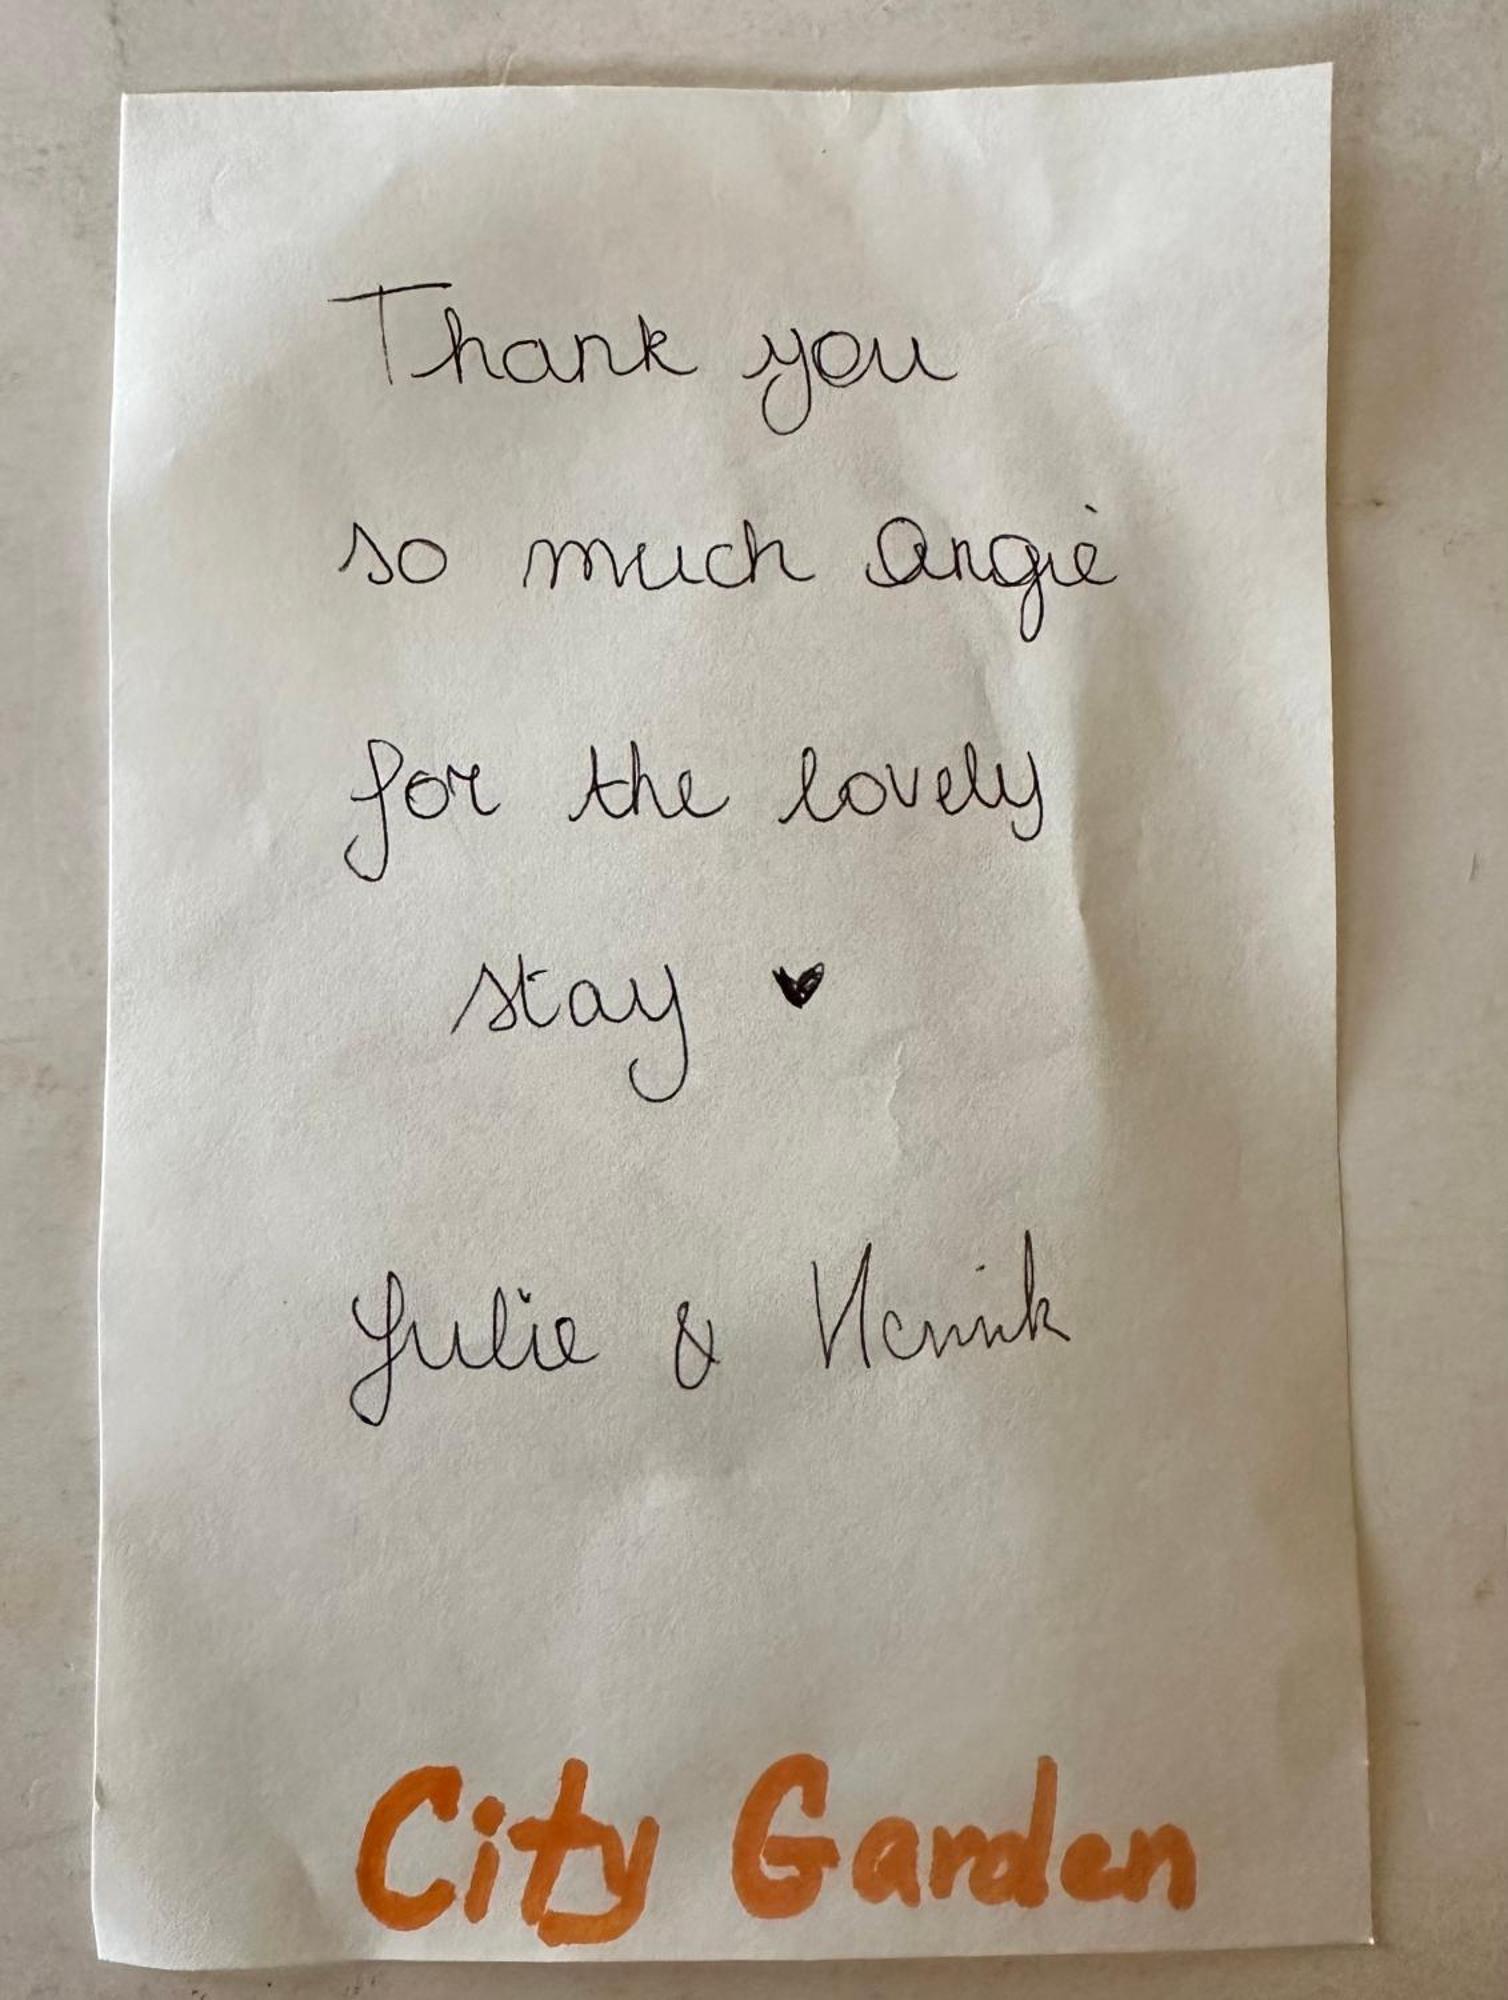 Thank you
so much Angie
for the lovely
stay ♥
Julie & Henrik
City Garden